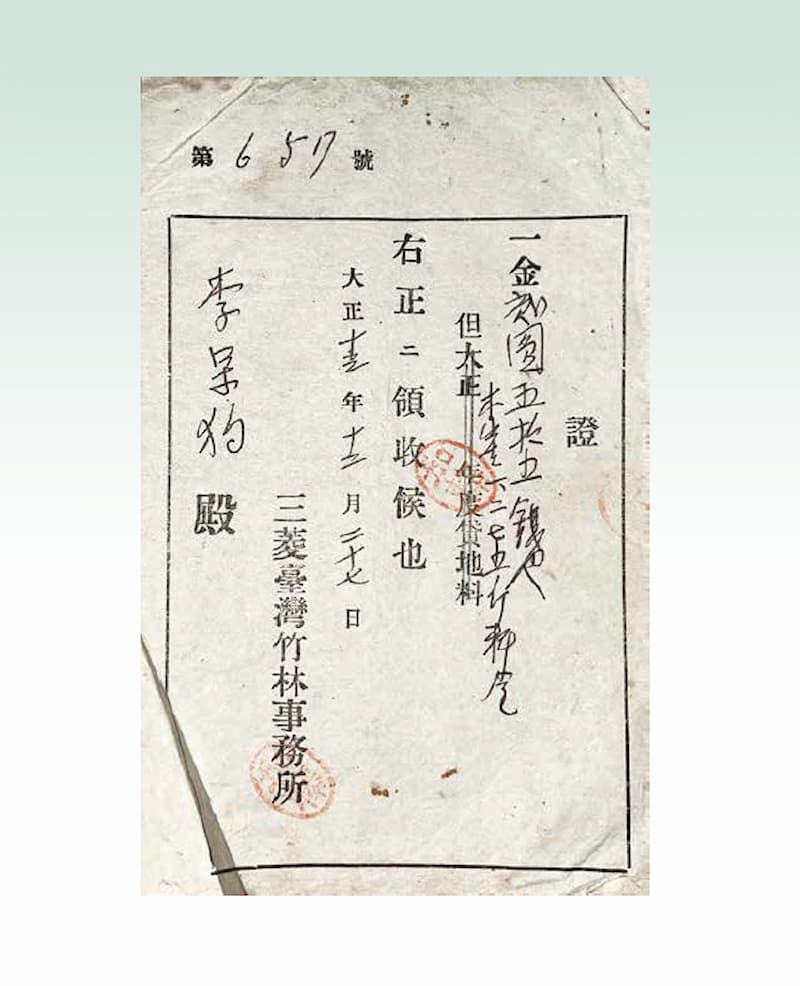 第657號
證
一金貳圓五拾五錢也
但大正 年度貸地料
木炭六三七五斤料金
右正ニ領收候也
大正 年十二月二十七日
三菱臺灣竹林事務所
李呆狗殿